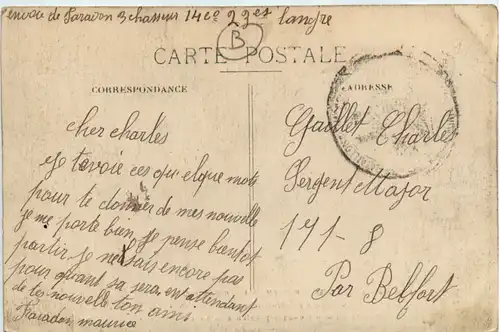 envoie de Paradon 3 chasseur 14 co 23es langre
B
CARTE POSTALE
CORRESPONDANCE
ADRESSE
cher charles
je tavoie ces quelque mots
pour te donner de mes nouvelle
je me porte bien je pense bantot
partir je ne sais encore pas
pour quant sa sera, est atendant
de tes nouvelle ton ami
Paradon maurice
Gaillet Charles
Sergent Major
171 - 8
Par Belfort